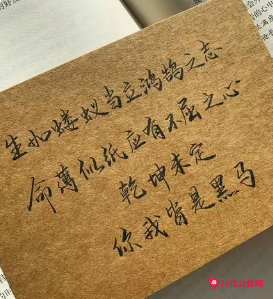 生如蝼蚁当立鸿鹄之志
命薄似纸应有不屈之心
乾坤未定
你我皆是黑马